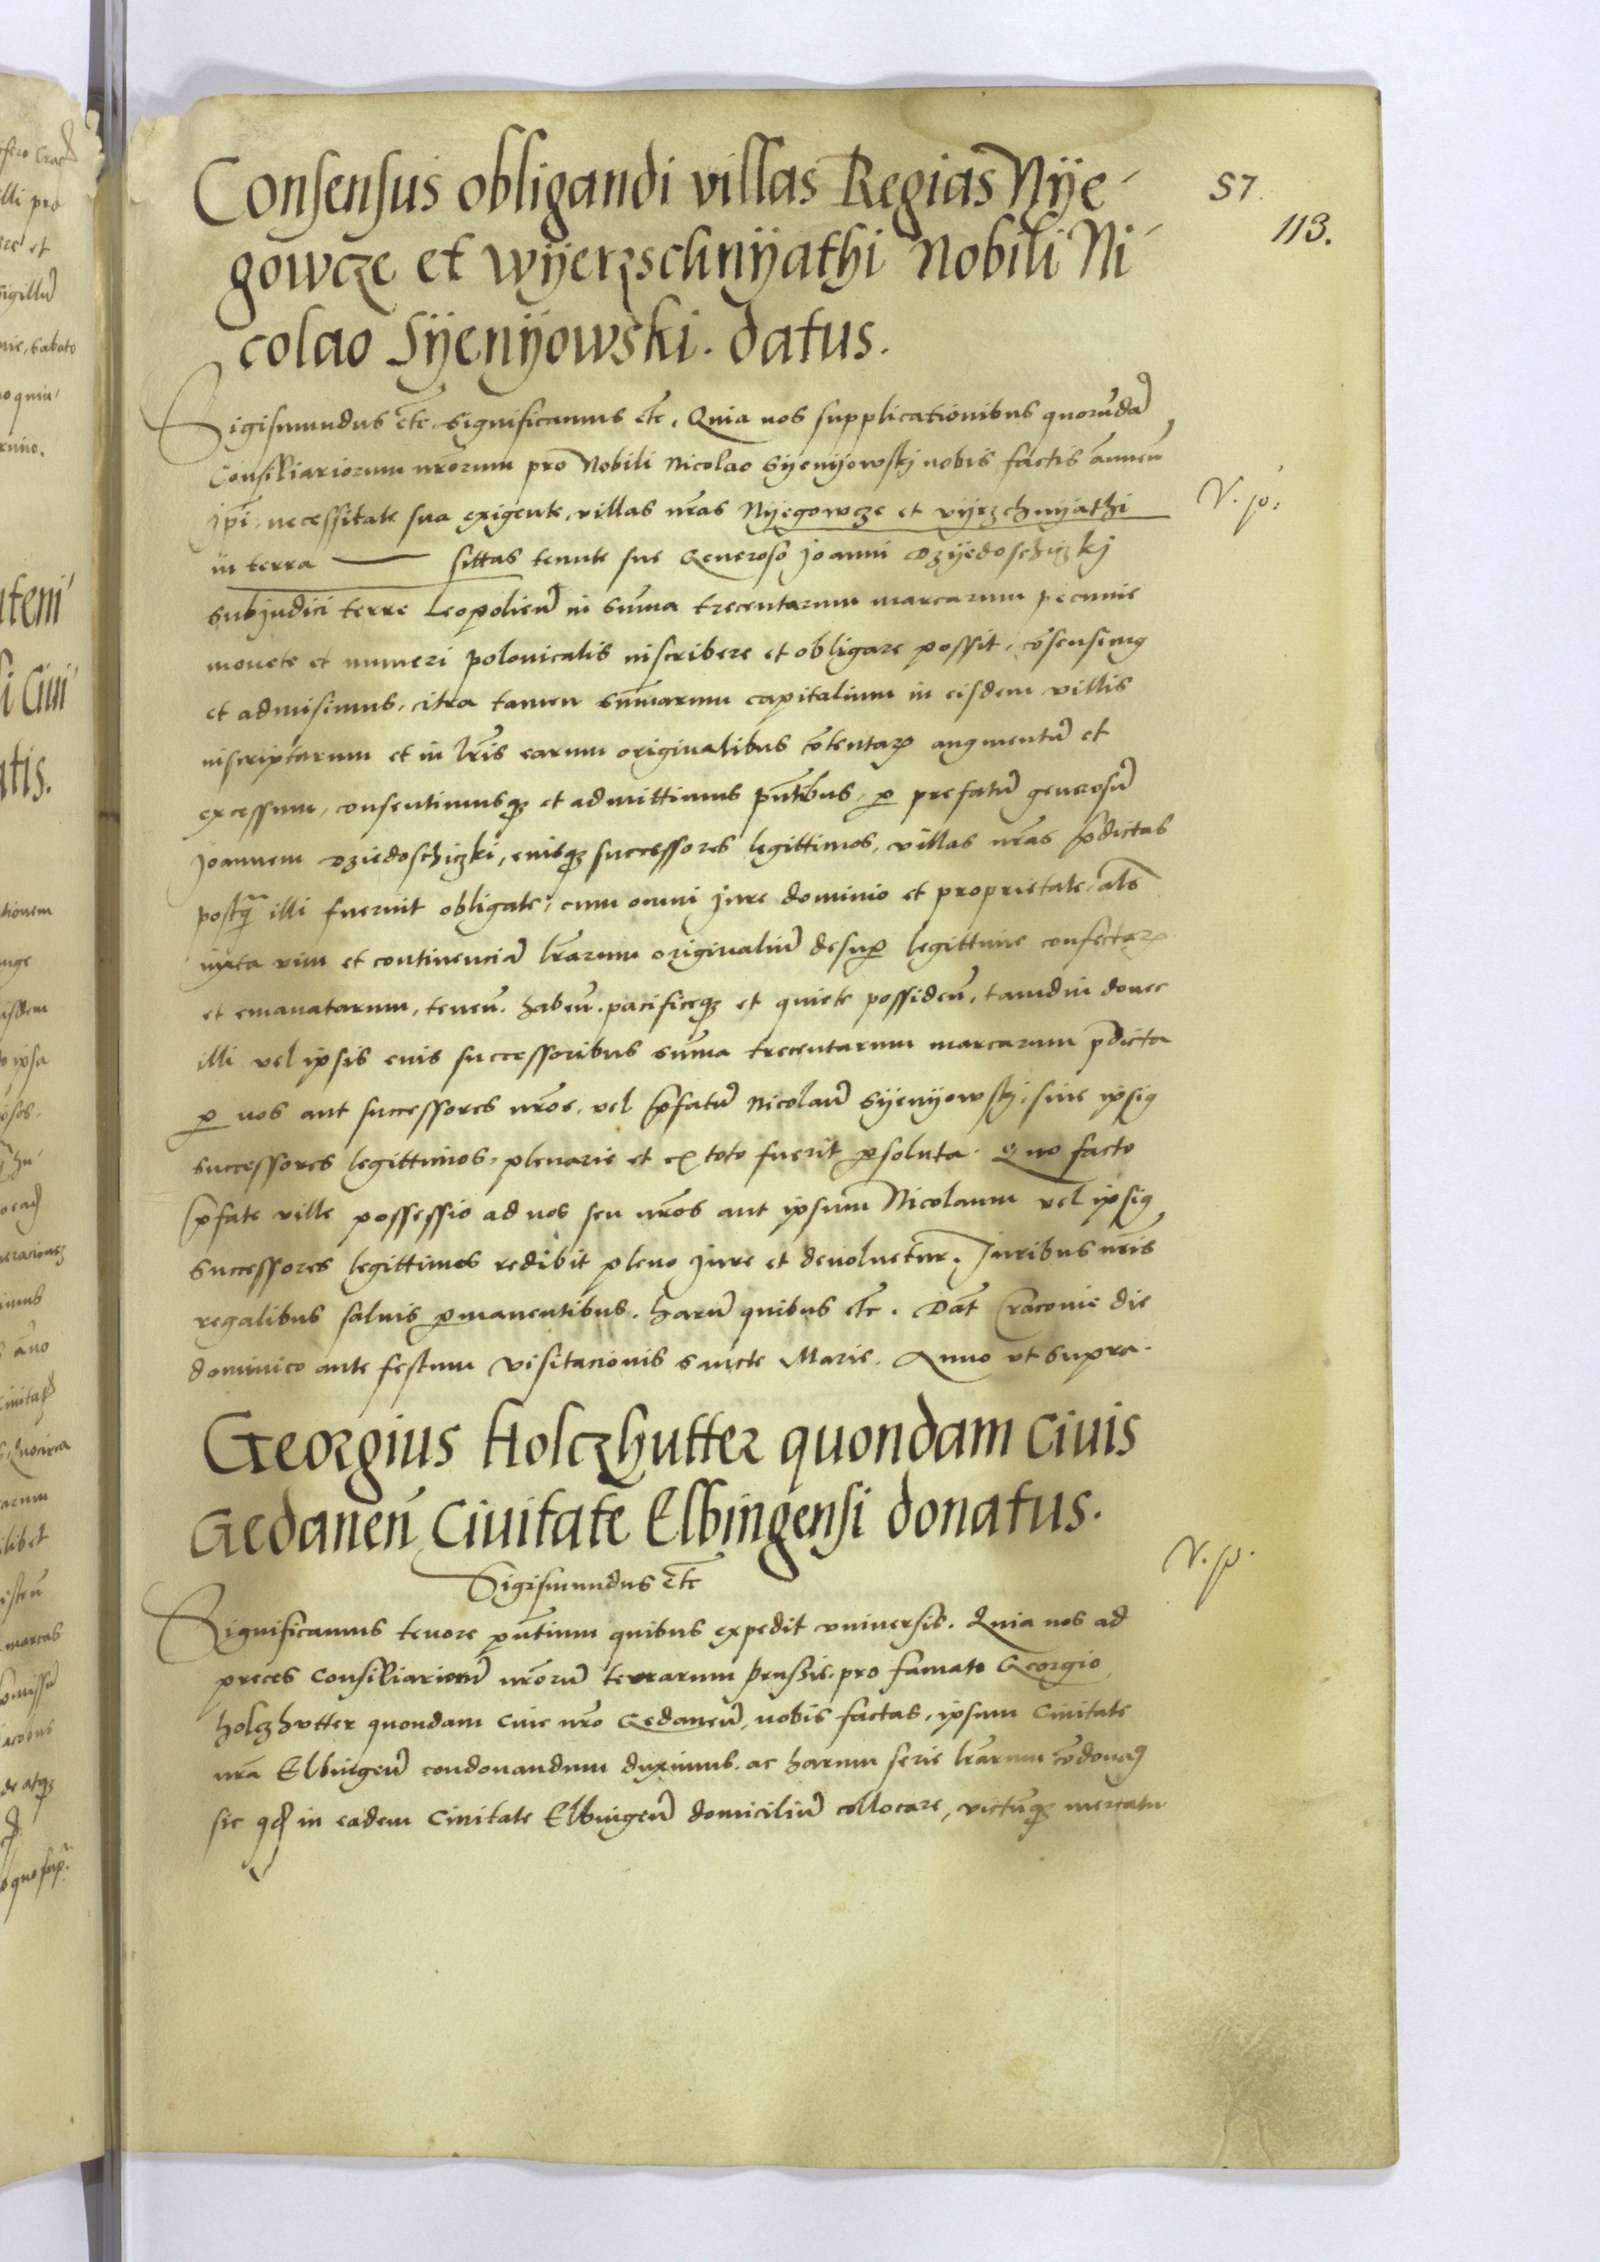 Consensus obligandi villas Regias Nÿe-
gowcze et Wÿerzschnÿathi Nobili Ni-
colao Sÿenÿowski. datus.
57.
113.
Sigismundus etc̄ significamus etc̄. Quia nos supplicationibus quorūdā
Consiliariorum nr̄orum pro Nobili Nicolao Sÿenÿowskj nobis factis annuen̄
jp̄i, necessitate sua exigente, villas nr̄as Nÿegowcze et vÿerzchnÿathi
V. p.
in terra sittas tenute sue Generoso Joanni Dzÿedoschiczkj
subjudici terre Leopolien̄ in sūma trecentarum marcarum pecunie
monete et numeri polonicalis inscribere et obligare possit, cōsensimq
et admisimus, citra tamen sūmarum capitalium in eisdem villis
inscriptarum et in lr̄is earum originalibus cōtentaꝝ augmentū et
excessum, consentimusqꝫ et admittimus pn̄tibus, ꝑ prefatū generosū
Joannem Dziedoschiczki, eiusqꝫ successores legittimos, villas nr̄as p̄dictas
postq̄ illi fuerint obligate, cum omni jure dominio et proprietate, als̄
iuxta vim et continenciā lr̄arum originaliū desuꝑ legittime confectaꝝ
et emanatarum, tenen̄. haben̄. pacificeqꝫ et quiete possiden̄, tamdiu donec
illi vel ipsis eius successoribus sūma trecentarum marcarum p̄dicta
ꝑ nos aut successores nr̄os, vel p̄fatū Nicolaū Sÿenÿowskj, siue ipsiq
successores legittimos, plenarie et ex toto fuerit ꝑsoluta. Quo facto
p̄fate ville possessio ad nos seu nr̄os aut ipsum Nicolaum vel ipsiq
successores legittimos redibit pleno jure et deuoluetur, Juribus nr̄is
regalibus saluis ꝑmanentibus. harū quibus etc̄. Dat̄ Cracouie die
dominico ante festum Visitacionis sancte Marie. Anno vt supra.
Georgius Holczhutter quondam Ciuis
Gedanen̄ Ciuitate Elbingensi donatus.
V. p.
Sigismundus etc̄
Significamus tenore pn̄tium quibus expedit vniuersis. Quia nos ad
preces Consiliariorū nr̄orū terrarum Prussie, pro famato Georgio
holczhvtter quondam Ciue nr̄o Gedanen̄, nobis factas, ipsum Ciuitate
nr̄a Elbingen̄ condonandum duximus. ac harum serie lr̄arum cōdonaꝗ
sic qd in eadem Ciuitate Elbingen̄ domiciliū collocare, victūqꝫ mercatu